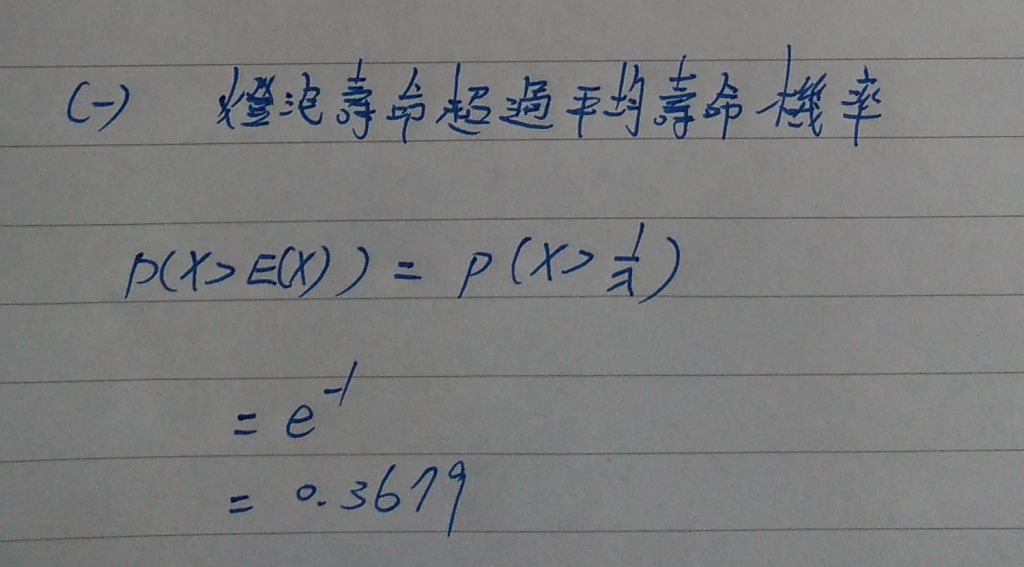 (一) 燈泡壽命超過平均壽命機率
P(X> E(X)) = P(X> 1/λ)
= e^-1
= 0.3679